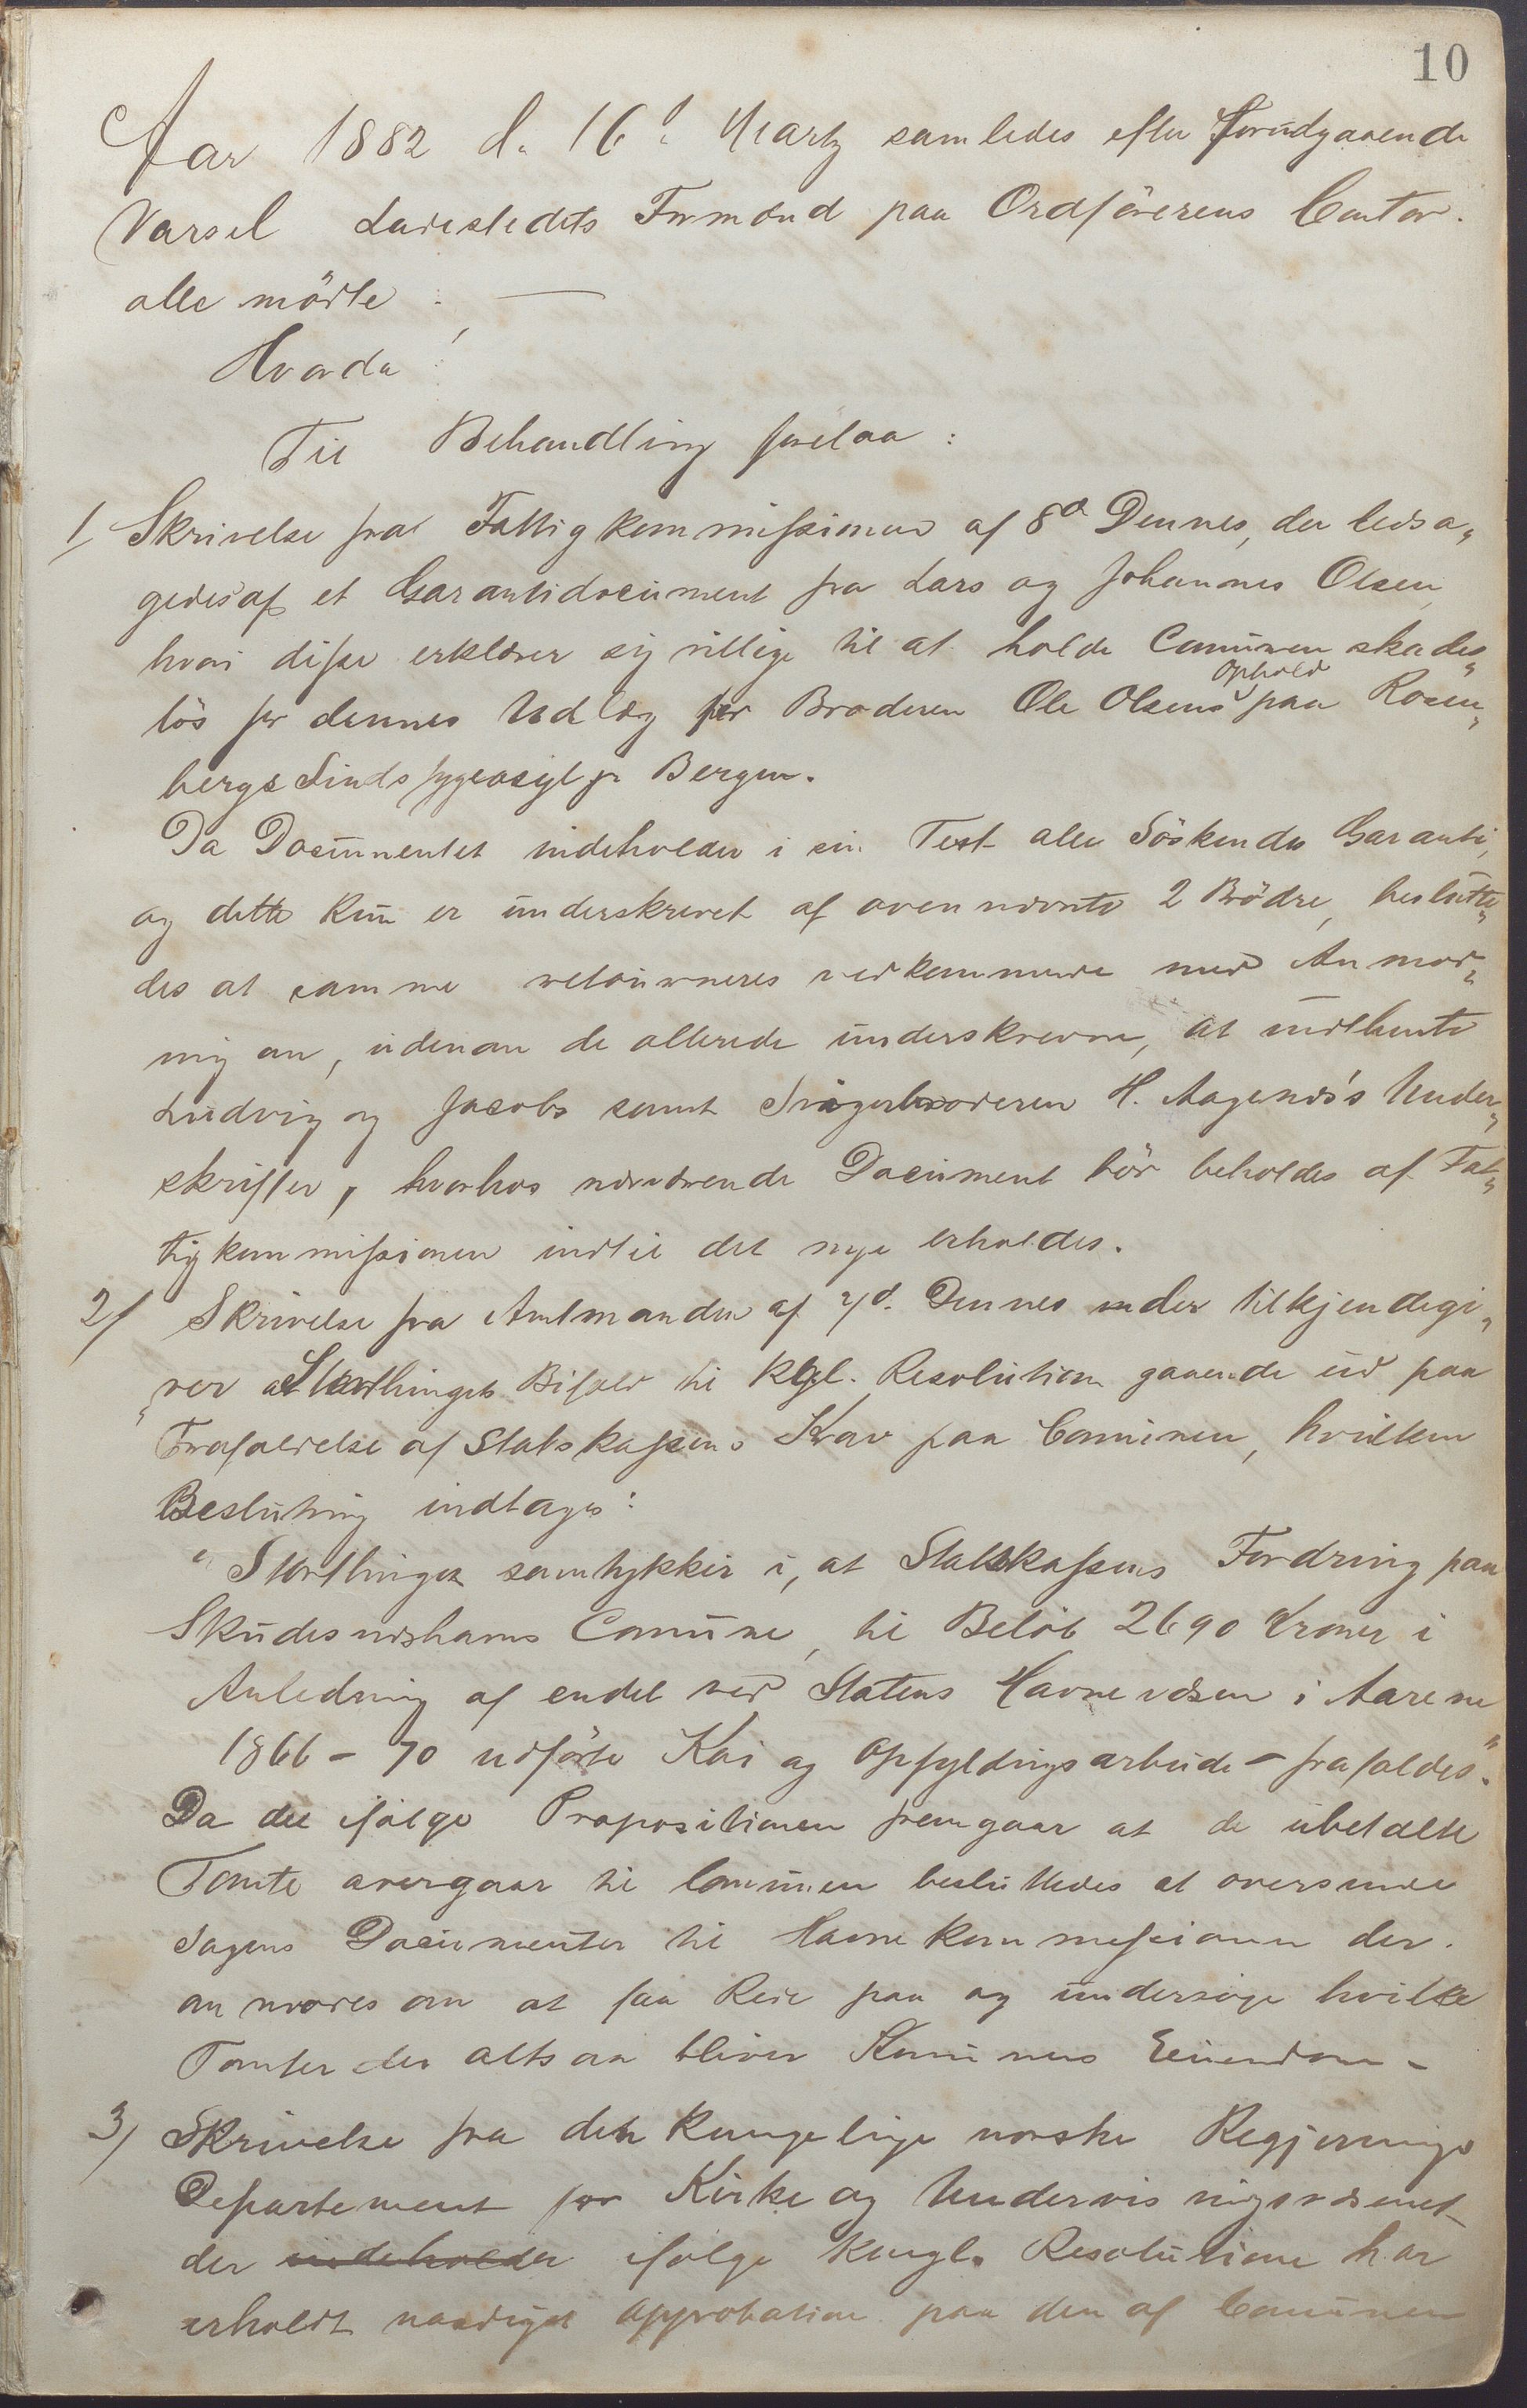 10
Aar 1882 d. 16d Martz samledes efter forudgaaende
Varsel Ladestedets Formænd paa Ordførerens Contor.
alle mödte. —
Hvorda!
Til Behandling forelaa:
1/ Skrivelse fra Fattigkommissionen af 8d Dennes, der ledsa„
gedes af et Garantidocument fra Lars og Johannes Olsen,
hvori disse erklærer sig villige til at holde Comunen skades„
lös for dennes Udlæg for Broderen Ole Olsens Ophold paa Rosen„
bergs Sindssygeasyl pr Bergen.
Da Documentet indeholder i sin Text alle Söskendes Garanti,
og dette kun er underskrevet af ovennævnte 2 Brödre, beslutte„
des at samme retourneres vedkommende med Anmod„
ning om, udenom de allerede underskrevne, at indhente
Ludvig og Jacobs samt Svogerbroderen H. Aagenæs's Under„
skrifter, hvorhos nærværende Document bör beholdes af Fat„
tigkommissionen indtil det nye erholdes.
2/ Skrivelse fra Amtmanden af 7d. Dennes der tilkjendegi„
„ver at Storthingets Bifald til Kgl. Resolution gaaende ud paa
Frafaldelse af Statskassens Krav paa Comunen, hvilken
Beslutning indtages:
"Storthinget samtykker i, at Statskassens Fordring paa
Skudesnæshavns Comune, til Beløb 2690 Kroner i
Anledning af endel ved Statens Havnevæsen i Aarene
1866 – 70 udförte Kai og Opfyldingsarbeide – frafaldes".
Da det ifölge Propositionen fremgaar at de ubetalte
Tomte overgaar til Comunen besluttedes at oversende
Sagens Documenter til Havnekommissionen der.
anmodes om at faa Rede paa og undersöge hvilke
Tomter der altsaa bliver Komunens Eiendom –
3/ Skrivelse fra det kongelige norske Regjerings
Departement for Kirke og Undervisningsvæsenet
der indeholder ifölge kongl. Resolution har
erholdt naadigst Approbation paa den af Comunen